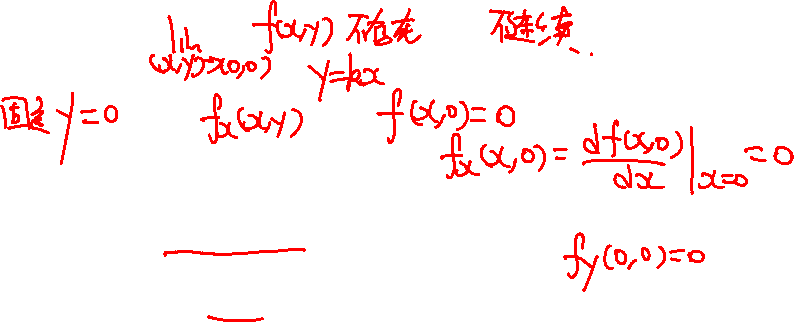 lim f(x,y) 不存在 不连续.
(x,y)→(0,0) y=kx
固定 y=0 fx(x,y) f(x,0)=0
fx(x,0)= df(x,0)/dx |x=0 =0
fy(0,0)=0